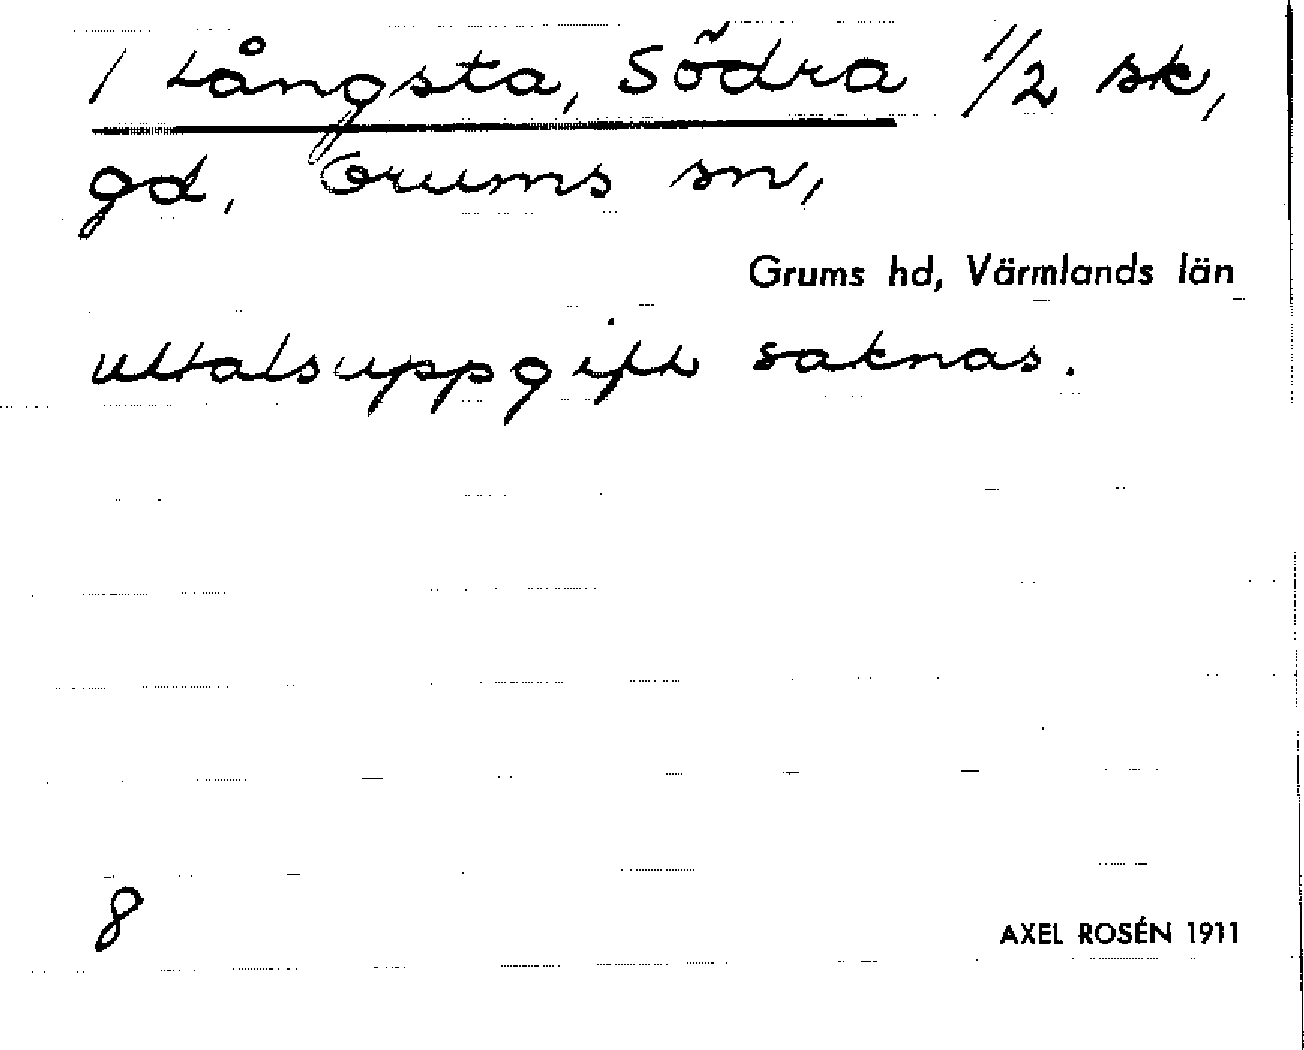 / Långsta, Södra 1/2 sk,
gd, Grums sn,
Grums hd, Värmlands län
uttalsuppgift saknas.
8
AXEL ROSÉN 1911